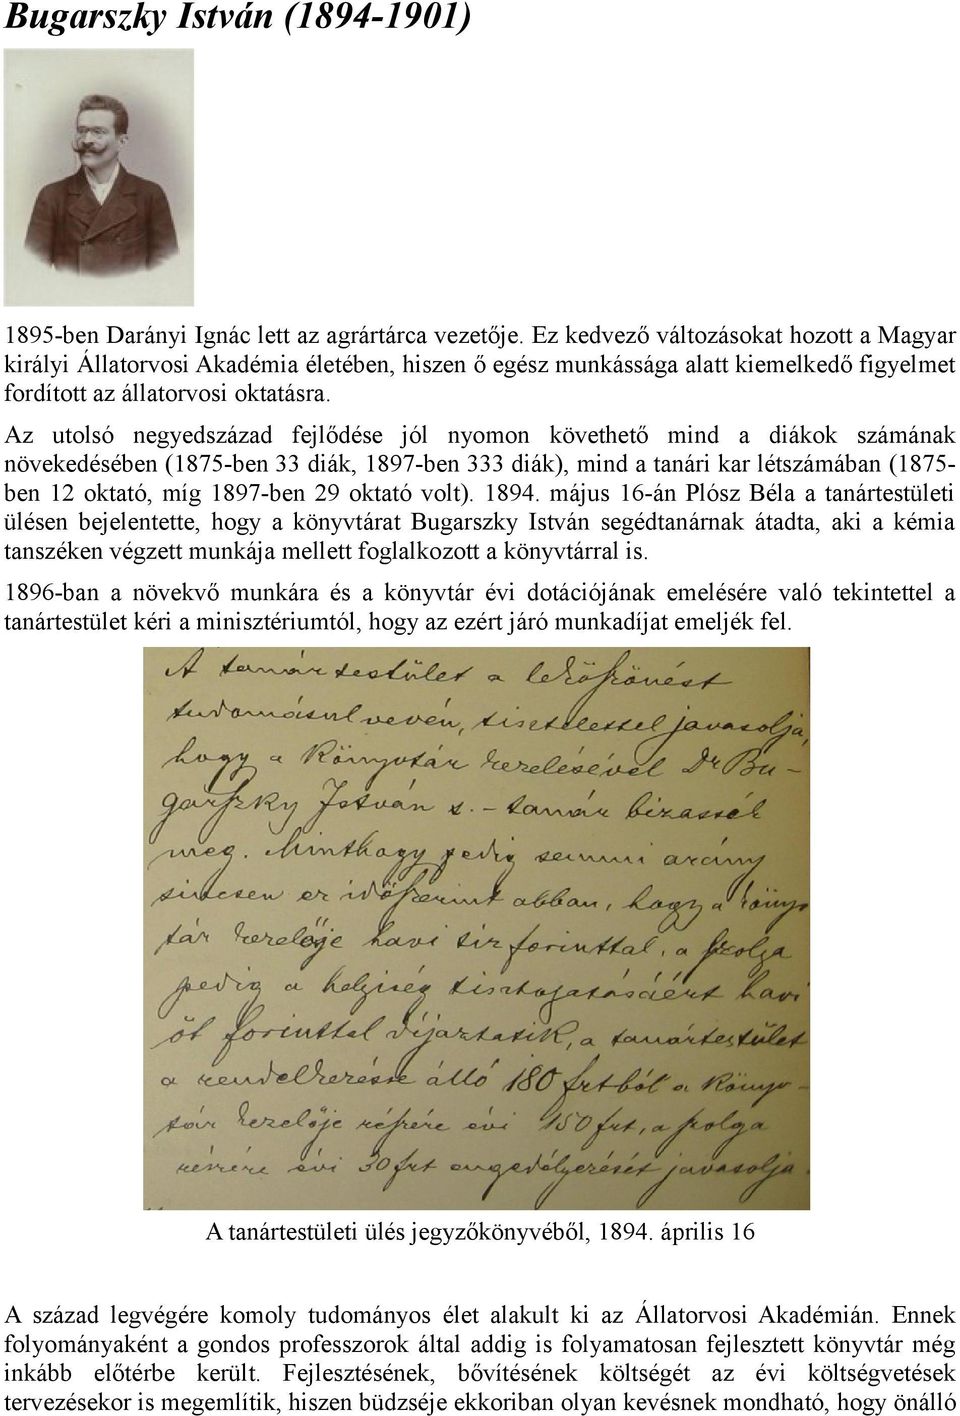 Bugarszky István (1894-1901)
1895-ben Darányi Ignác lett az agrártárca vezetője. Ez kedvező változásokat hozott a Magyar
királyi Állatorvosi Akadémia életében, hiszen ő egész munkássága alatt kiemelkedő figyelmet
fordított az állatorvosi oktatásra.
Az utolsó negyedszázad fejlődése jól nyomon követhető mind a diákok számának
növekedésében (1875-ben 33 diák, 1897-ben 333 diák), mind a tanári kar létszámában (1875-
ben 12 oktató, míg 1897-ben 29 oktató volt). 1894. május 16-án Plósz Béla a tanártestületi
ülésen bejelentette, hogy a könyvtárat Bugarszky István segédtanárnak átadta, aki a kémia
tanszéken végzett munkája mellett foglalkozott a könyvtárral is.
1896-ban a növekvő munkára és a könyvtár évi dotációjának emelésére való tekintettel a
tanártestület kéri a minisztériumtól, hogy az ezért járó munkadíjat emeljék fel.
A tanártestület a leköszönést
tudomásul vevén, tisztelettel javasolja,
hogy a könyvtár kezelésével Dr Bu-
garszky István s.-tanár bizassék
meg. Minthogy pedig semmi arány
sincsen az időszerint abban, hogy a köny
tár kezelője havi tiz forinttal, a szolga
pedig a helyiség tisztogatásáért havi
öt forinttal díjaztatik, a tanártestület
a rendelkezésre álló 180 frtból a könyv-
tár kezelője részére évi 150 frt, a szolga
részére évi 30 frt engedélyezését javasolja.
A tanártestületi ülés jegyzőkönyvéből, 1894. április 16
A század legvégére komoly tudományos élet alakult ki az Állatorvosi Akadémián. Ennek
folyományaként a gondos professzorok által addig is folyamatosan fejlesztett könyvtár még
inkább előtérbe került. Fejlesztésének, bővítésének költségét az évi költségvetések
tervezésekor is megemlítik, hiszen büdzséje ekkoriban olyan kevésnek mondható, hogy önálló